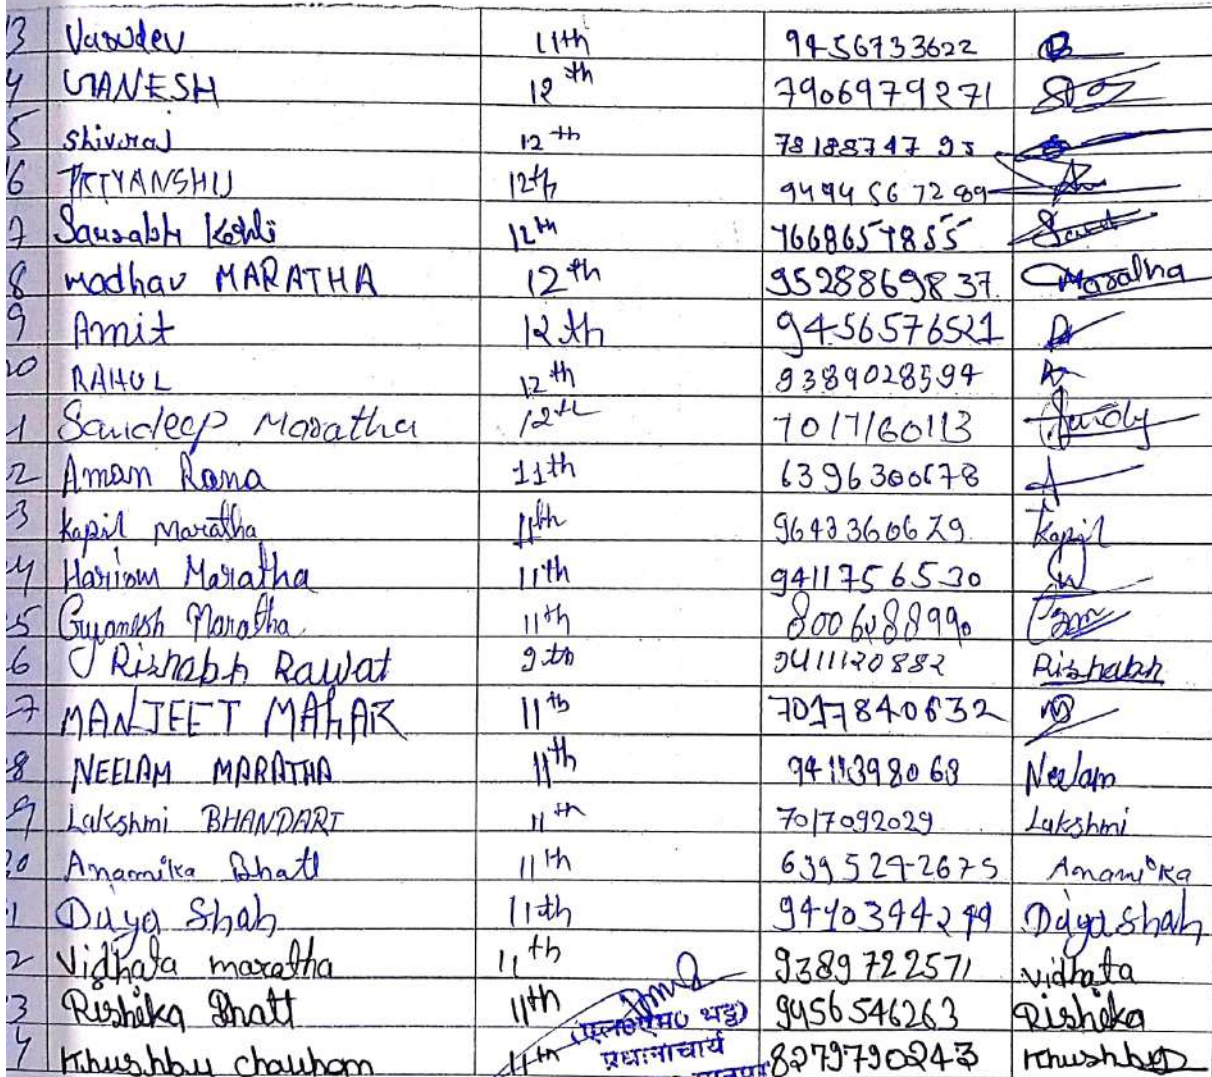 3 Vasudev 11th 9456733622
4 GANESH 12th 7906979271
5 Shivraj 12th 7818874793
6 PRIYANSHU 12th 9494567289
7 Saurabh Kohli 12th 7668657855
8 Madhav MARATHA 12th 9528869837 Maratha
9 Amit 12th 9456576521
20 RAHUL 12th 9389028594
1 Sandeep Maratha 12th 7017160113 Sandy
2 Aman Rana 11th 6396300678 A
3 Kapil Maratha 11th 9643360679 Kapil
4 Hariom Maratha 11th 9411756530
5 Gyanesh Maratha 11th
6 Rishabh Rawat 9th 9411120882 Rishabh
7 MANJEET MAHAR 11th 7017840632
8 NEELAM MARATHA 11th 9411398068 Neelam
9 Lakshmi BHANDARI 11th 7017092029 Lakshmi
20 Anamika Bhatt 11th 6395242675 Anamika
1 Daya Shah 11th Daya Shah
2 Vidhata maratha 11th 9389722571 vidhata
3 Rishika Bhatt 11th 9456546263 Rishika
भट्ट)
प्रधानाचार्य
4 Khushbu chauhan 11th 8279790243 Khushbu